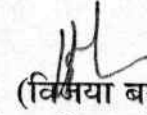 (विजया ब